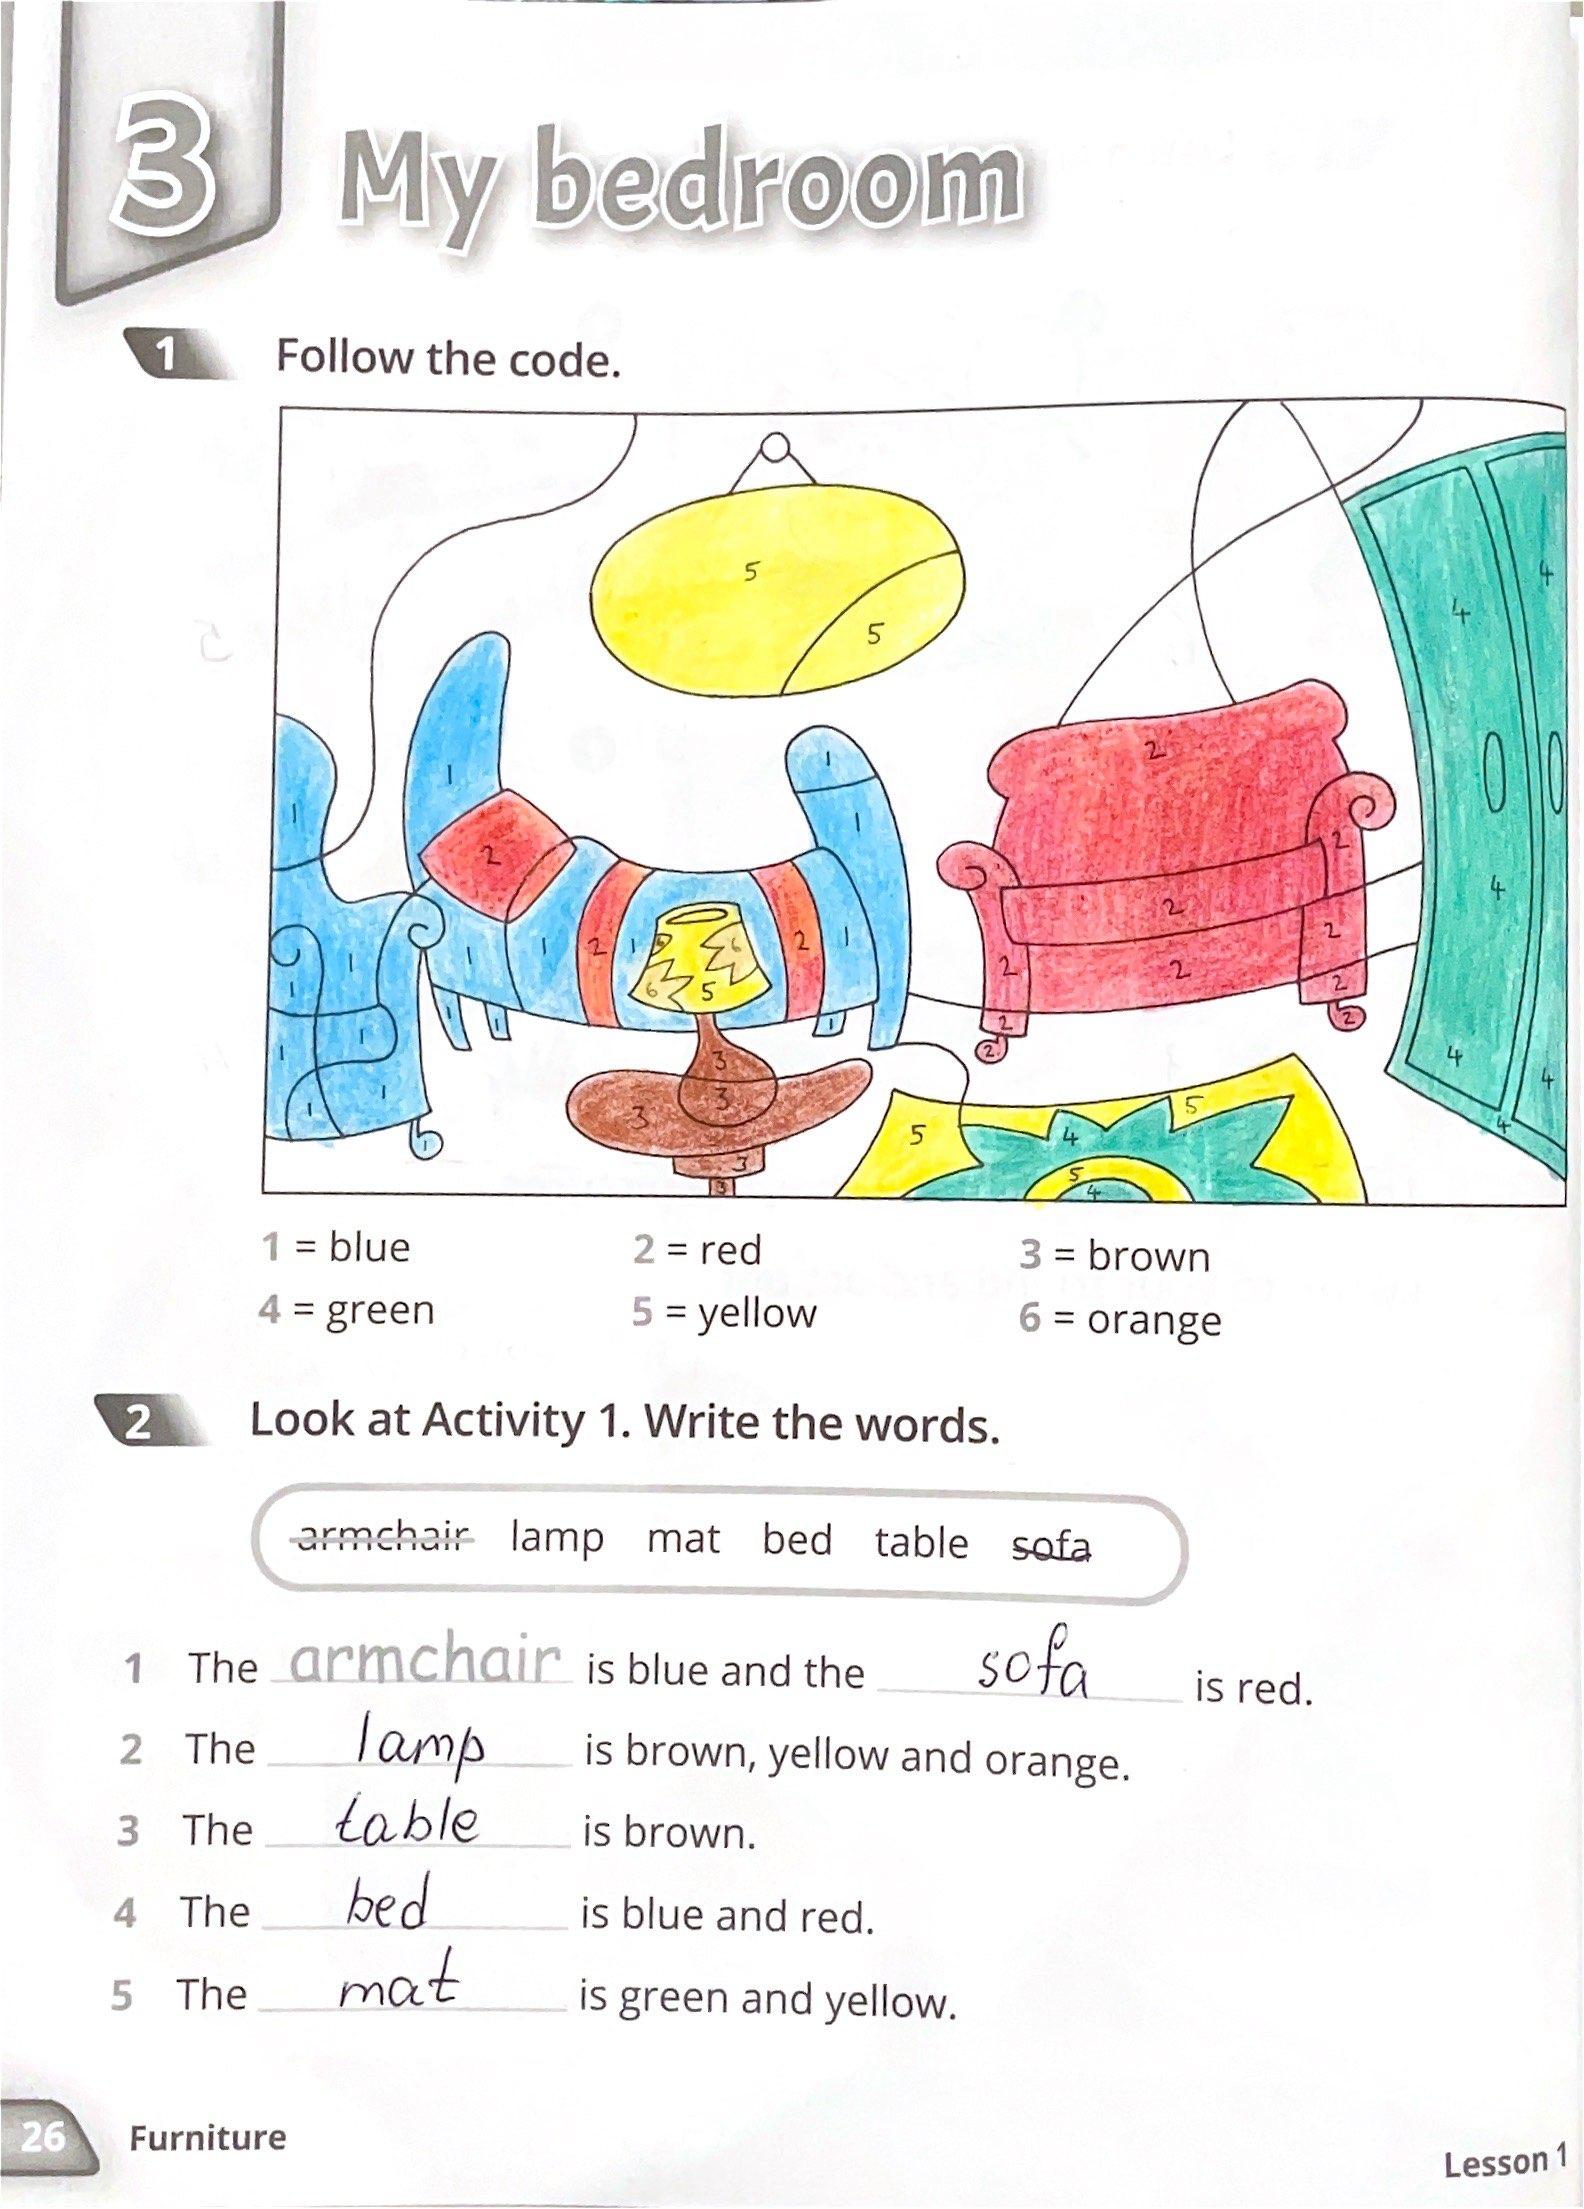 3 My bedroom
1 Follow the code.
5
5
4
4
2
1
1
1
1
2
2
2
4
1
1
2
1
2
1
6
6
2
2
1
1
6
5
2
2
2
1
1
1
1
1
2
2
2
2
3
4
4
1
1
3
3
5
5
4
4
1
3
5
3
4
1 = blue 2 = red 3 = brown
4 = green 5 = yellow 6 = orange
2 Look at Activity 1. Write the words.
armchair lamp mat bed table sofa
1 The armchair is blue and the sofa is red.
2 The lamp is brown, yellow and orange.
3 The table is brown.
4 The bed is blue and red.
5 The mat is green and yellow.
26 Furniture
Lesson 1